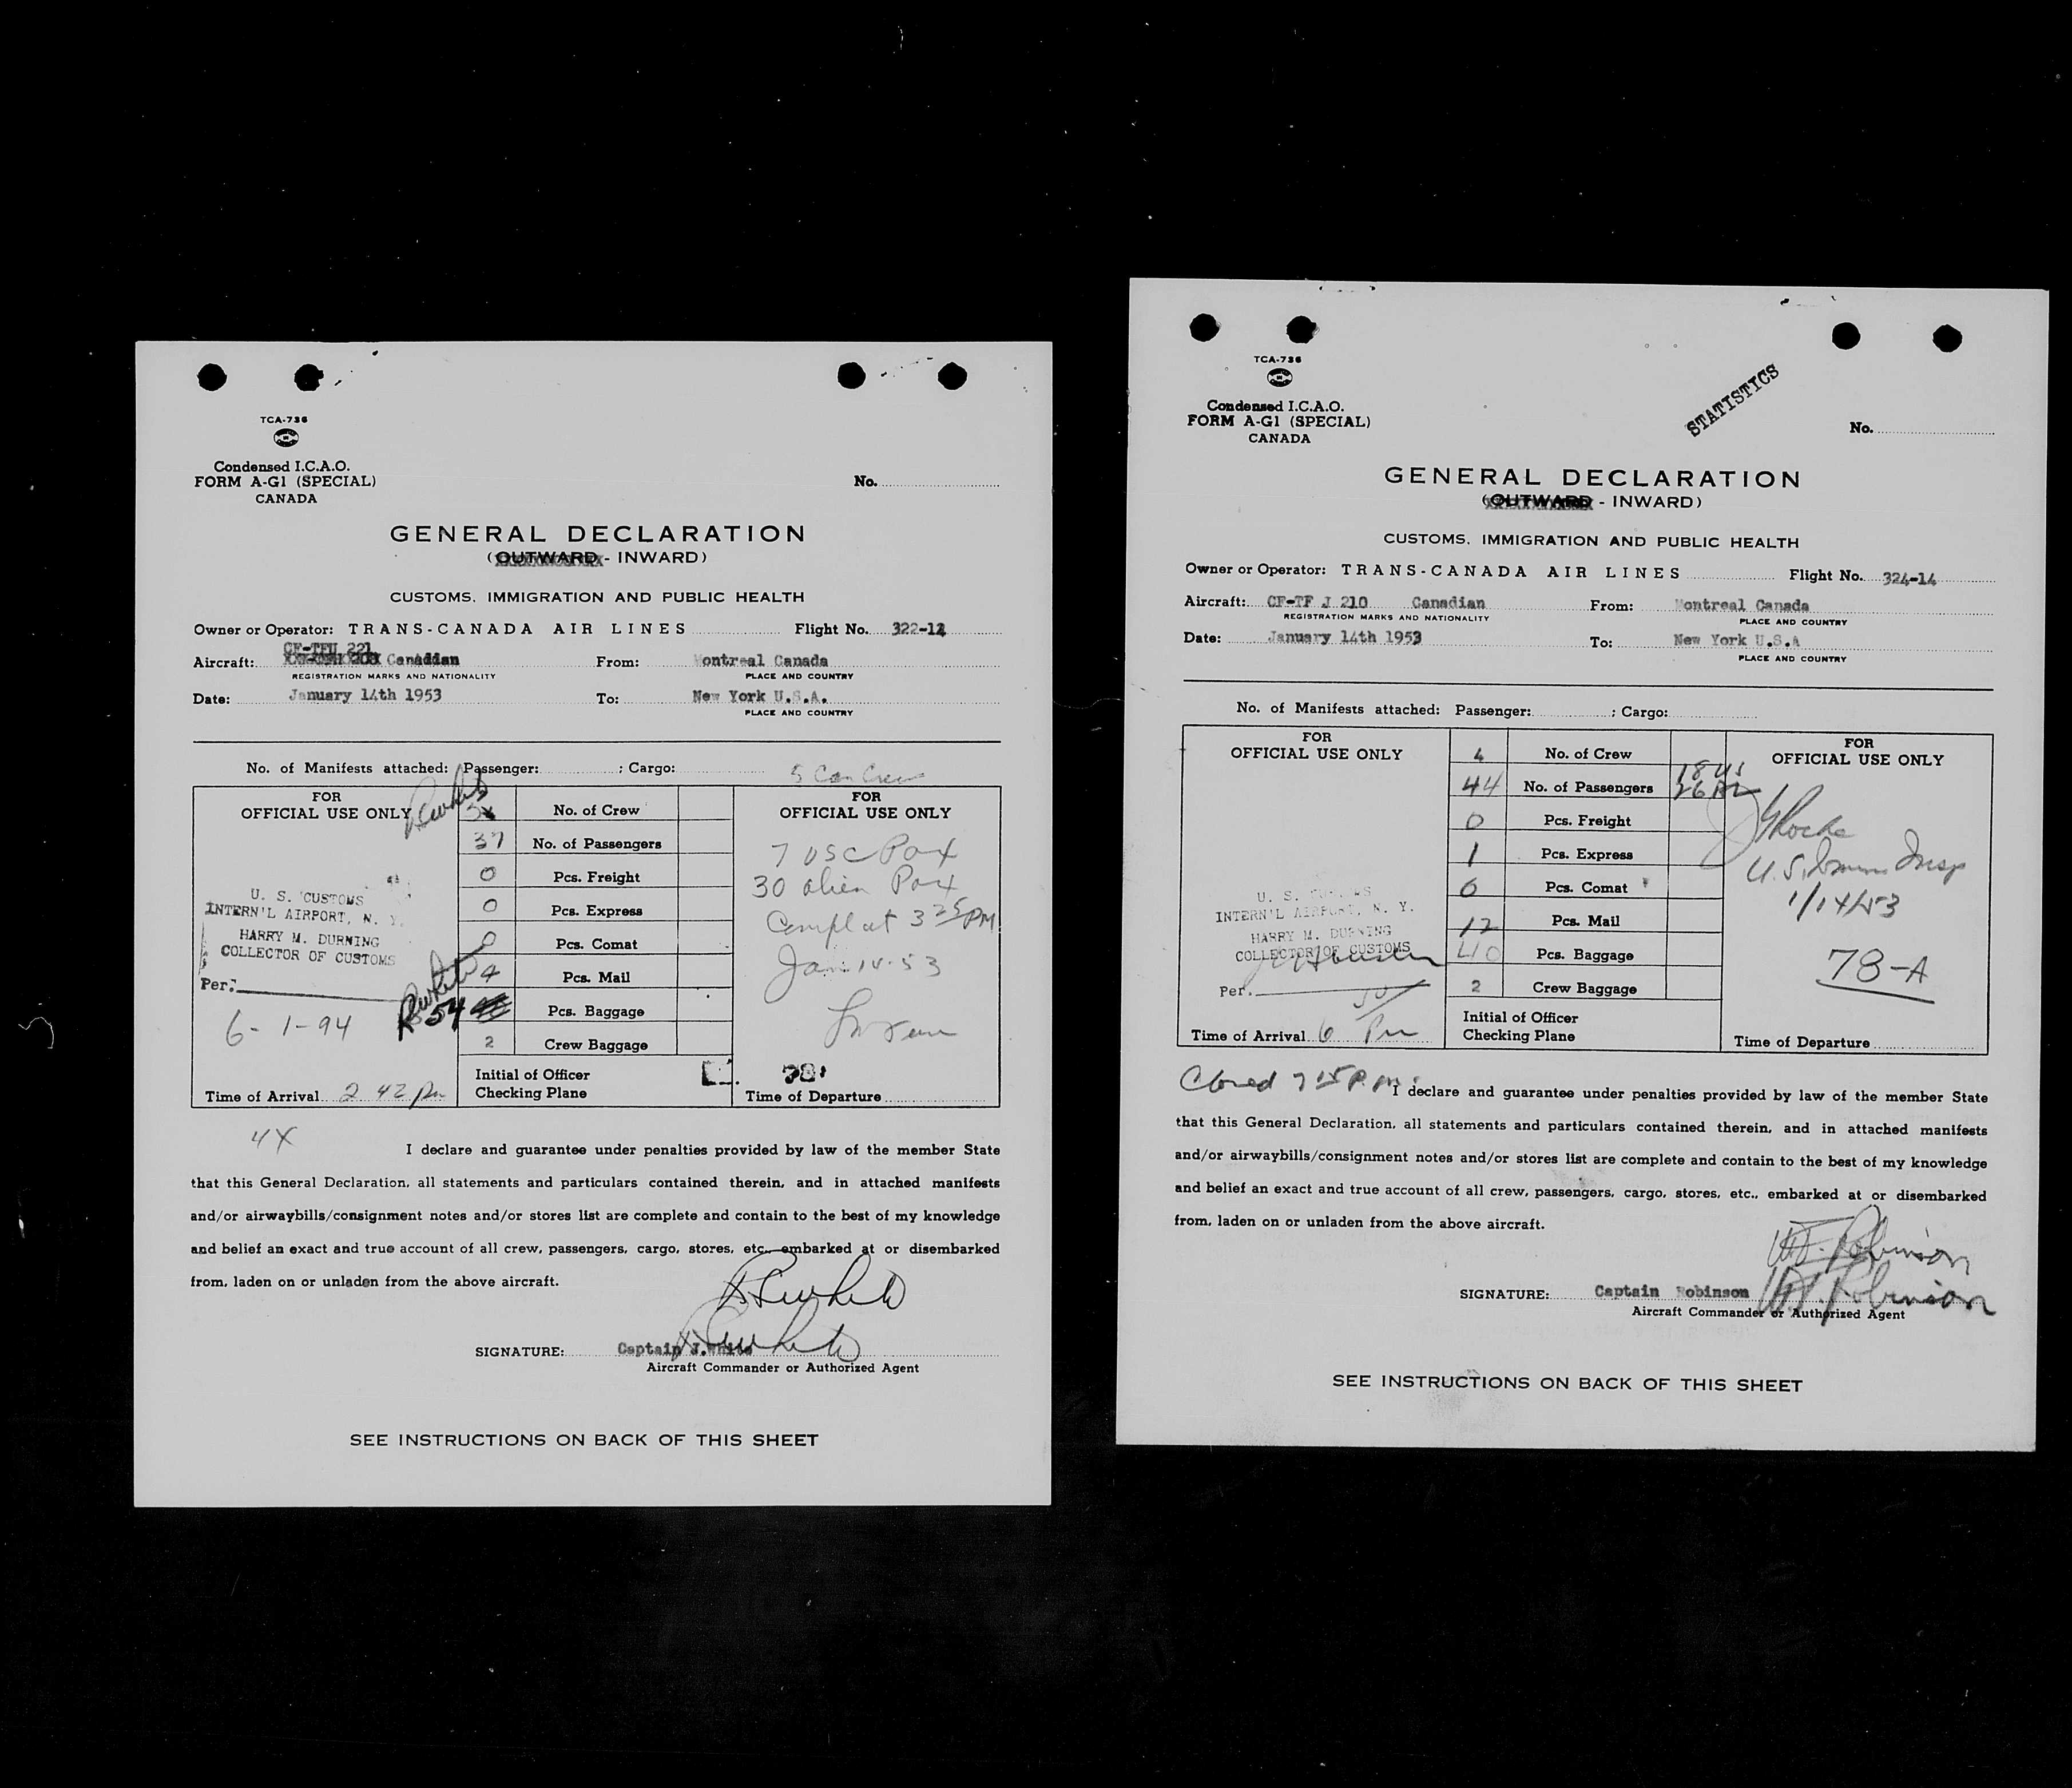 TCA-736
Condensed I.C.A.O.
FORM A-G1 (SPECIAL)
CANADA
No.
GENERAL DECLARATION
(OUTWARD - INWARD)
CUSTOMS, IMMIGRATION AND PUBLIC HEALTH
Owner or Operator: TRANS-CANADA AIR LINES Flight No. 322-14
CF-TFU 221
Aircraft: Canadian From: Montreal Canada
REGISTRATION MARKS AND NATIONALITY PLACE AND COUNTRY
Date: January 14th 1953 To: New York U.S.A.
PLACE AND COUNTRY
No. of Manifests attached: Passenger: ; Cargo: 5 Can Crew
FOR
OFFICIAL USE ONLY
U. S. CUSTOMS
INTERN'L AIRPORT, N. Y.
HARRY M. DURNING
COLLECTOR OF CUSTOMS
Per:
6-1-94
Time of Arrival 2 42 pm
No. of Crew
37 No. of Passengers
0 Pcs. Freight
0 Pcs. Express
0 Pcs. Comat
4 Pcs. Mail
54 Pcs. Baggage
2 Crew Baggage
Initial of Officer
Checking Plane
FOR
OFFICIAL USE ONLY
7 USC Pax
30 alien Pax
Compl at 3 25 PM
Jan 14-53
78
Time of Departure
4X
I declare and guarantee under penalties provided by law of the member State
that this General Declaration, all statements and particulars contained therein, and in attached manifests
and/or airwaybills/consignment notes and/or stores list are complete and contain to the best of my knowledge
and belief an exact and true account of all crew, passengers, cargo, stores, etc., embarked at or disembarked
from, laden on or unladen from the above aircraft.
SIGNATURE: Captain J.White
Aircraft Commander or Authorized Agent
SEE INSTRUCTIONS ON BACK OF THIS SHEET
TCA-736
Condensed I.C.A.O.
FORM A-G1 (SPECIAL)
CANADA
STATISTICS
No.
GENERAL DECLARATION
(OUTWARD - INWARD)
CUSTOMS, IMMIGRATION AND PUBLIC HEALTH
Owner or Operator: TRANS-CANADA AIR LINES Flight No. 324-14
Aircraft: CF-TF J 210 Canadian From: Montreal Canada
REGISTRATION MARKS AND NATIONALITY PLACE AND COUNTRY
Date: January 14th 1953 To: New York U.S.A
PLACE AND COUNTRY
No. of Manifests attached: Passenger: ; Cargo:
FOR
OFFICIAL USE ONLY
U. S. CUSTOMS
INTERN'L AIRPORT, N. Y.
HARRY M. DURNING
COLLECTOR OF CUSTOMS
Per.
Time of Arrival 6 Pm
4 No. of Crew
44 No. of Passengers 18 US
0 Pcs. Freight
1 Pcs. Express
6 Pcs. Comat
12 Pcs. Mail
40 Pcs. Baggage
2 Crew Baggage
Initial of Officer
Checking Plane
FOR
OFFICIAL USE ONLY
U.S. Imm Insp
1/14/53
78-A
Time of Departure
Closed 7 15 P.m.
I declare and guarantee under penalties provided by law of the member State
that this General Declaration, all statements and particulars contained therein, and in attached manifests
and/or airwaybills/consignment notes and/or stores list are complete and contain to the best of my knowledge
and belief an exact and true account of all crew, passengers, cargo, stores, etc., embarked at or disembarked
from, laden on or unladen from the above aircraft.
SIGNATURE: Captain Robinson
Aircraft Commander or Authorized Agent
SEE INSTRUCTIONS ON BACK OF THIS SHEET